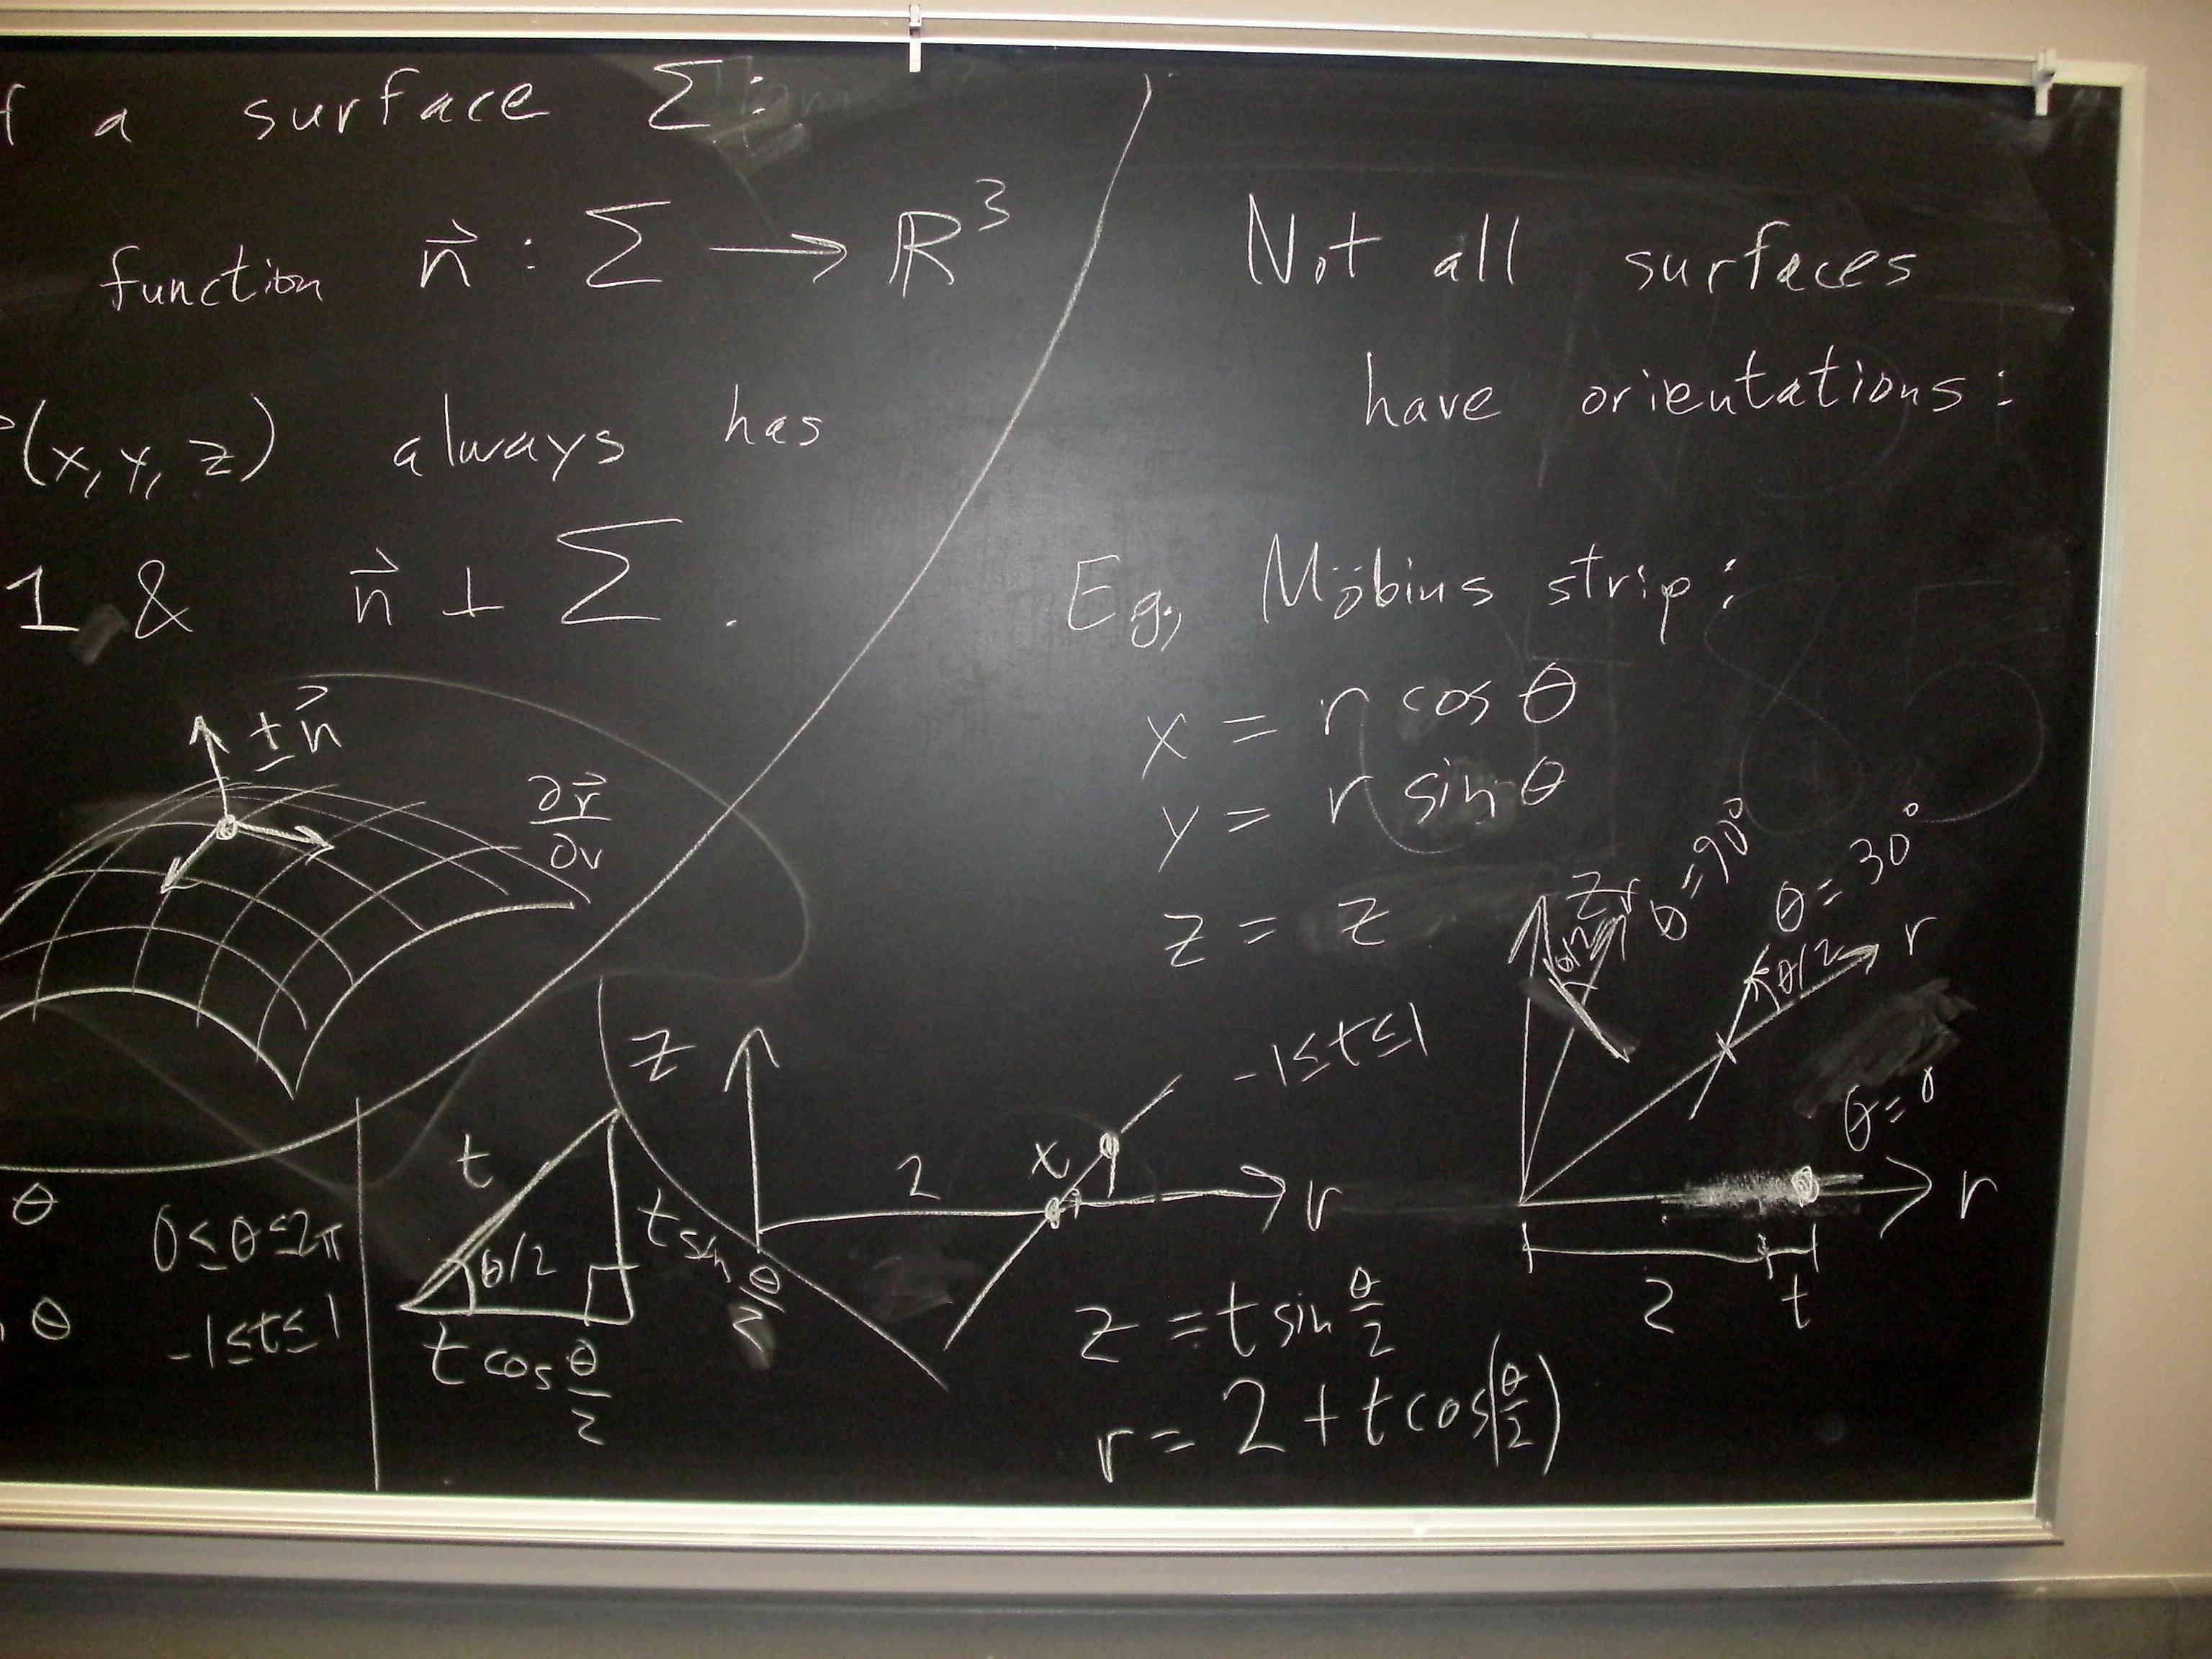 f a surface Σ:
function n⃗ : Σ → ℝ³
(x, y, z) always has
1 & n⃗ ⊥ Σ.
±n⃗
∂r⃗/∂v
θ
0≤θ≤2π
θ
-1≤t≤1
t
θ/2
t sin θ/2
t cos θ/2
Not all surfaces
have orientations:
Eg, Möbius strip:
x = r cos θ
y = r sin θ
z = z
z
2
x
-1≤t≤1
r
z = t sin θ/2
r = 2 + t cos(θ/2)
z
r
θ=90°
θ/2
θ = 30°
θ/2
r
θ=0
r
2
t